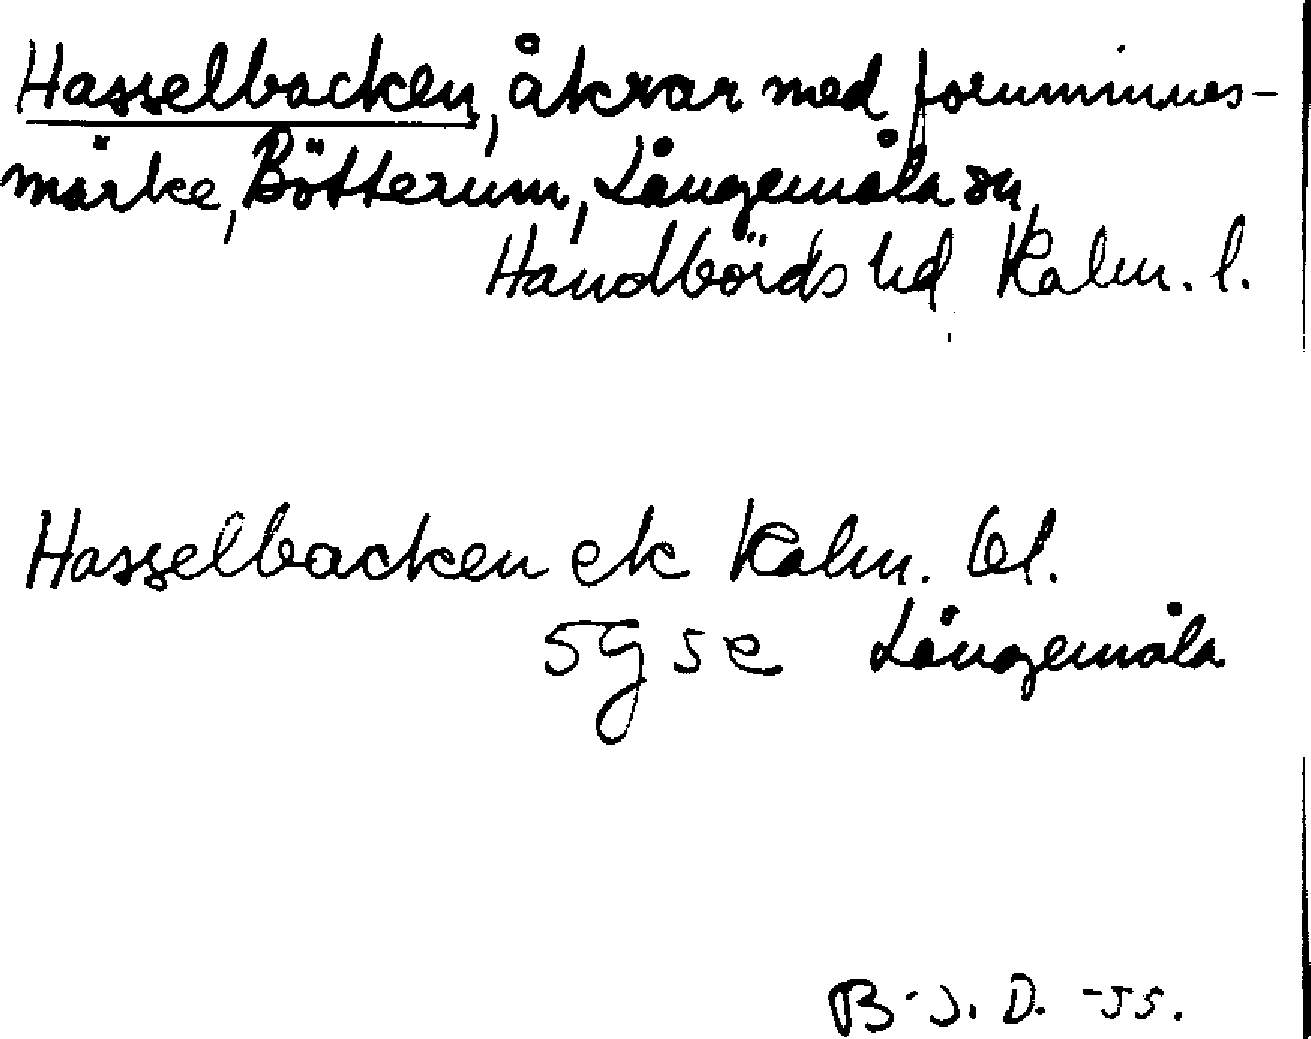 Hasselbacken, åkrar med fornminnes-
märke, Bötterum, Långemåla sn,
Handbörds hd Kalm. l.
Hasselbacken ek Kalm. bl.
5g5e Långemåla
B-J. D. -55.